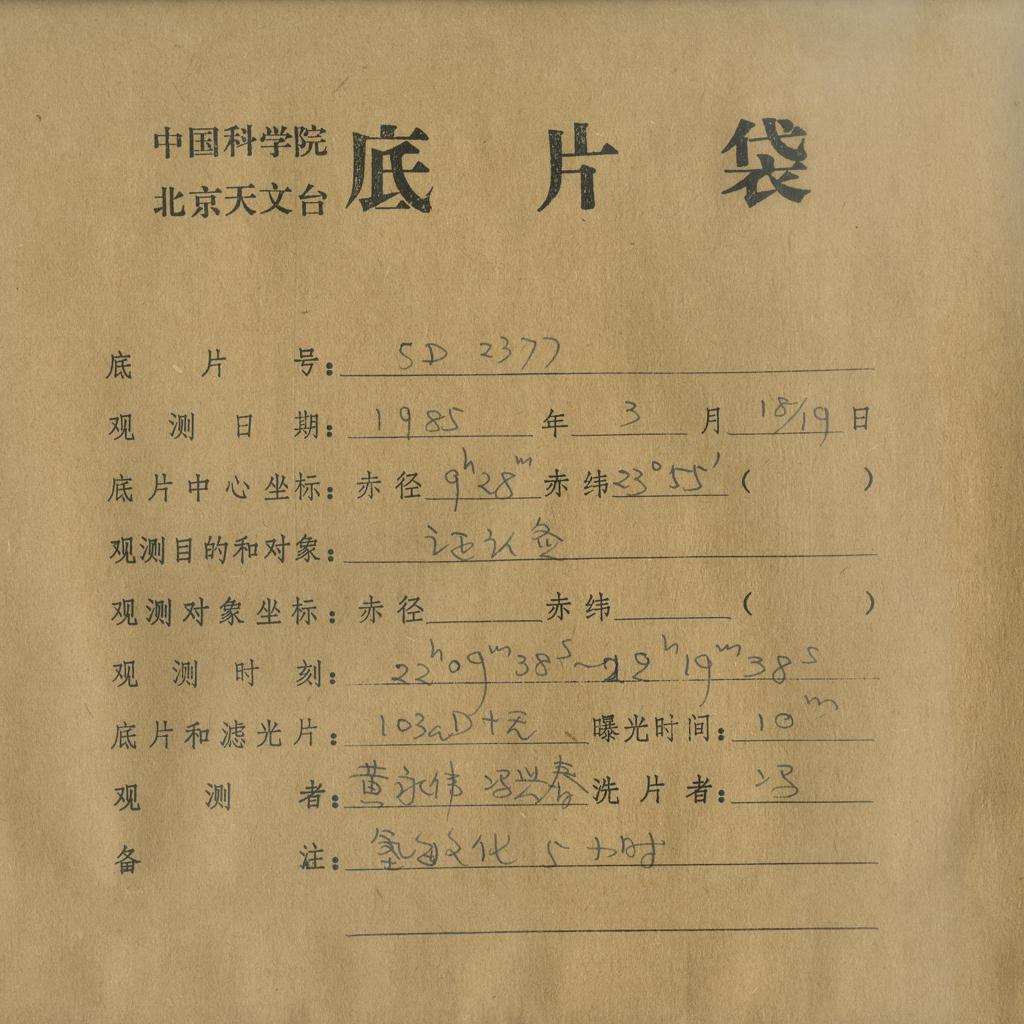 中国科学院
北京天文台
底片袋
底片号：SD 2377
观测日期：1985年3月18/19日
底片中心坐标：赤径9h28m赤纬23°55′（ ）
观测目的和对象：证认
观测对象坐标：赤径 赤纬 （ ）
观测时刻：22h09m38s～22h19m38s
底片和滤光片：103aD+无 曝光时间：10m
观测者：黄永伟 冯兴春 洗片者：冯
备注：敏化 5小时